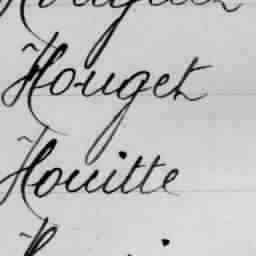 Houget
Houitte